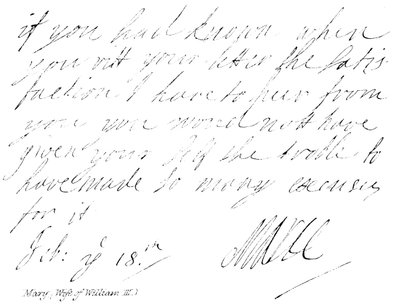 if you had known when
you ritt your letter the satis
faction I have to heer from
you you woud nott have
given your self the trouble to
have made so many excuses
for it
Feb: ye 18th
MARIE
Mary, (Wife of William III.)